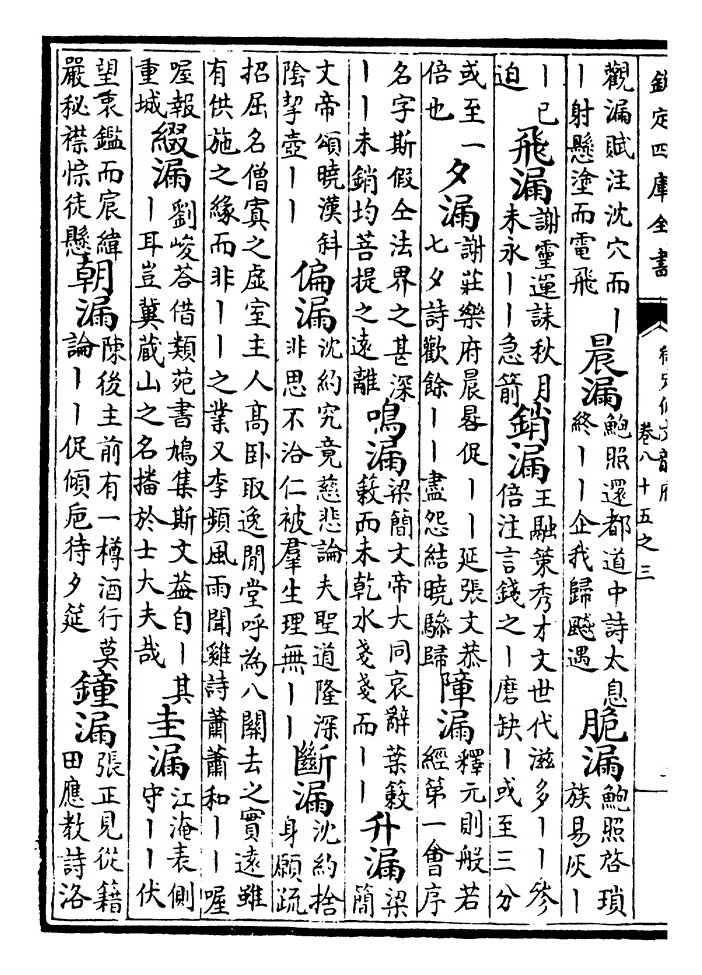 欽定四庫全書
卷八十五之三
觀漏賦注沈穴而｜｜射懸塗而電飛 晨漏 鮑照還都道中詩太息終｜｜企我歸飈遇 脆漏 鮑照啓瑣族易灰｜
｜已迫 飛漏 謝靈運誄秋月未永｜｜急箭 銷漏 王融策秀才文世代滋多｜｜參倍注言錢之｜磨缺｜或至三分
或至一倍也 夕漏 謝莊樂府晨晷促｜｜延張文恭七夕詩歡餘｜｜盡怨結曉驂歸 障漏 釋元則般若經第一會序
名字斯假仝法界之甚深｜｜未銷均菩提之遠離 鳴漏 梁簡文帝大同哀辭葉籔籔而未乾水戔戔而｜｜ 升漏 梁簡
文帝頌曉漢斜陰挈壺｜｜ 偏漏 沈約究竟慈悲論夫聖道隆深非思不洽仁被羣生理無｜｜ 斷漏 沈約捨身願疏
招屈名僧寘之虛室主人高卧取逸閒堂呼為八關去之實遠雖有供施之緣而非｜｜之業又李頻風雨聞雞詩蕭蕭和｜｜喔
喔報重城 綴漏 劉峻荅借類苑書鳩集斯文葢自｜其｜耳豈冀藏山之名播於士大夫哉 圭漏 江淹表側守｜｜伏
望袞鑑而宸緯嚴秘襟悰徒懸 朝漏 陳後主前有一樽酒行莫論｜｜促傾卮待夕筵 鐘漏 張正見從籍田應教詩洛